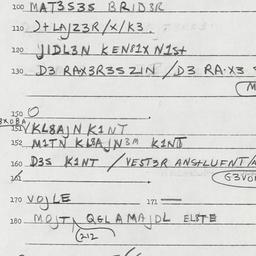 100 MAT3S3S BRID3R
110 )+LAJZ3R/X/K3.
120 JIDL3N KEN81X N1St
130 D3 RAX3R3SZIN /D3 RA·X3
150 O
151 KL8AJN K1NT
152 M1TN KL8AJN3M K1NT
160 D3S K1NT / VEST3R ANSTLUENT/
170 VOJLE 171
180 MOJT, QGLAMAJDL ELSTE
212